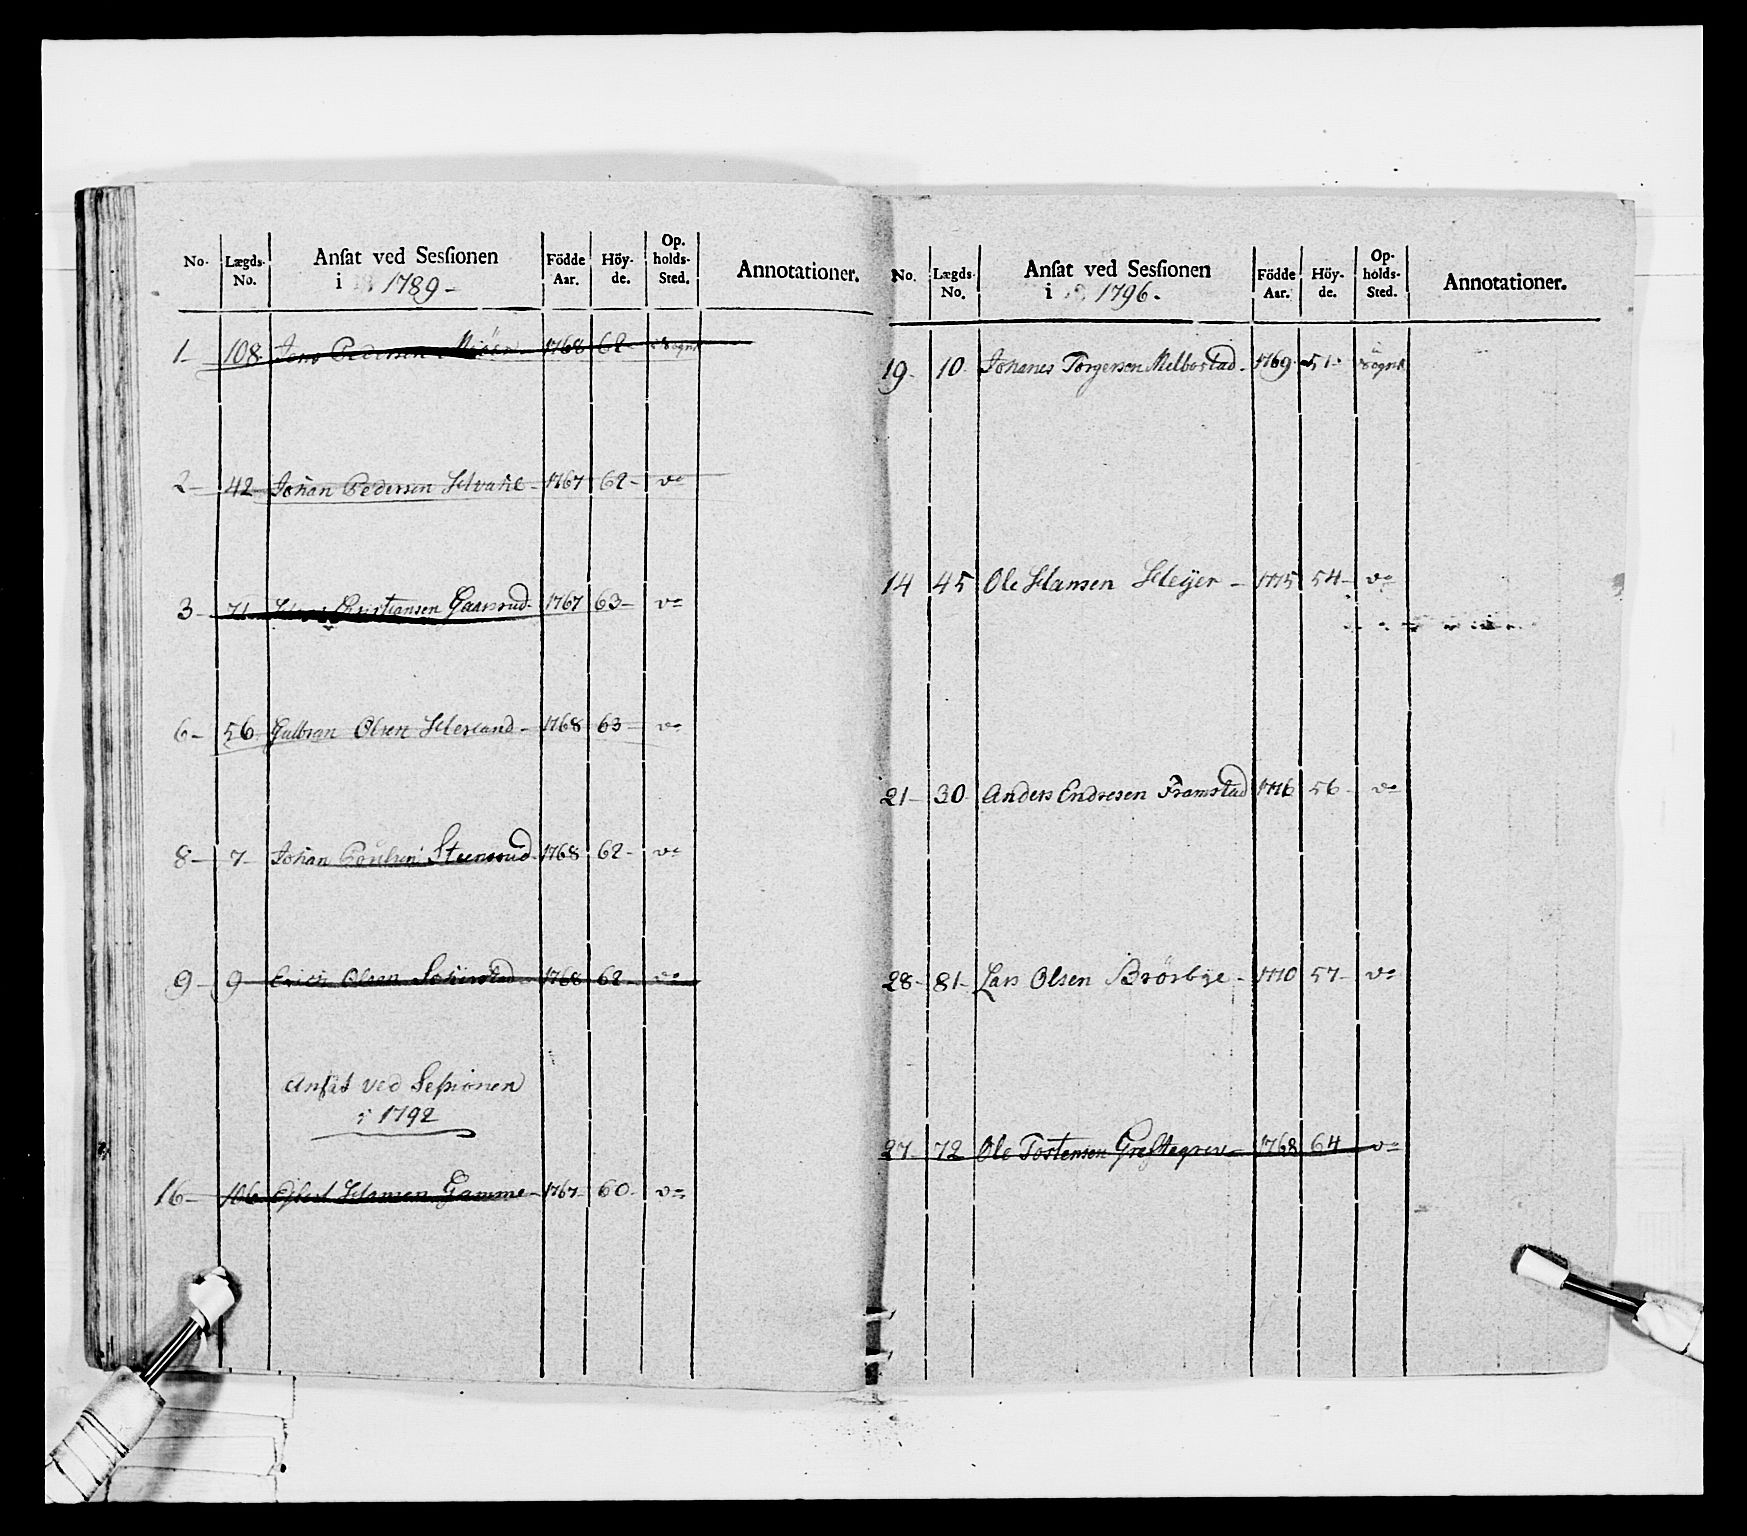 No. Lægds- No. Ansat ved Sessionen i 1789 - Födde Aar. Höy- de. Op- holds- Sted. Annotationer.
1 - 108 Pedersen 1768 62 - Sognt
2 - 42 - Johan Pedersen - 1767 62 - do
3 - 71 Christiansen Gaarsrud - 1767 63 - do
6 - 56 Gulbran Olsen - 1768 63 - do
8 - 7 - Johan Poulsen Steensrud - 1768 62 - do
9 - 9 Erich Olsen 1768 62 - do
Ansat ved Sessionen
i 1792
16 - 106 Hansen Gamme - 1767 60 - do
No. Lægds- No. Ansat ved Sessionen i 1796 - Födde Aar. Höy- de. Op- holds- Sted. Annotationer.
19 - 10 Johanes Torgersen Melbostad - 1769 51 - Sognt
14 45 Ole Hansen Heyer - 1775 54 - do
21 - 30 Anders Endresen Framstad 1776 56 - do
28 - 81 - Lars Olsen Brörbye - 1770 57 - do
27 - 72 Ole Tostensen - 1768 64 do